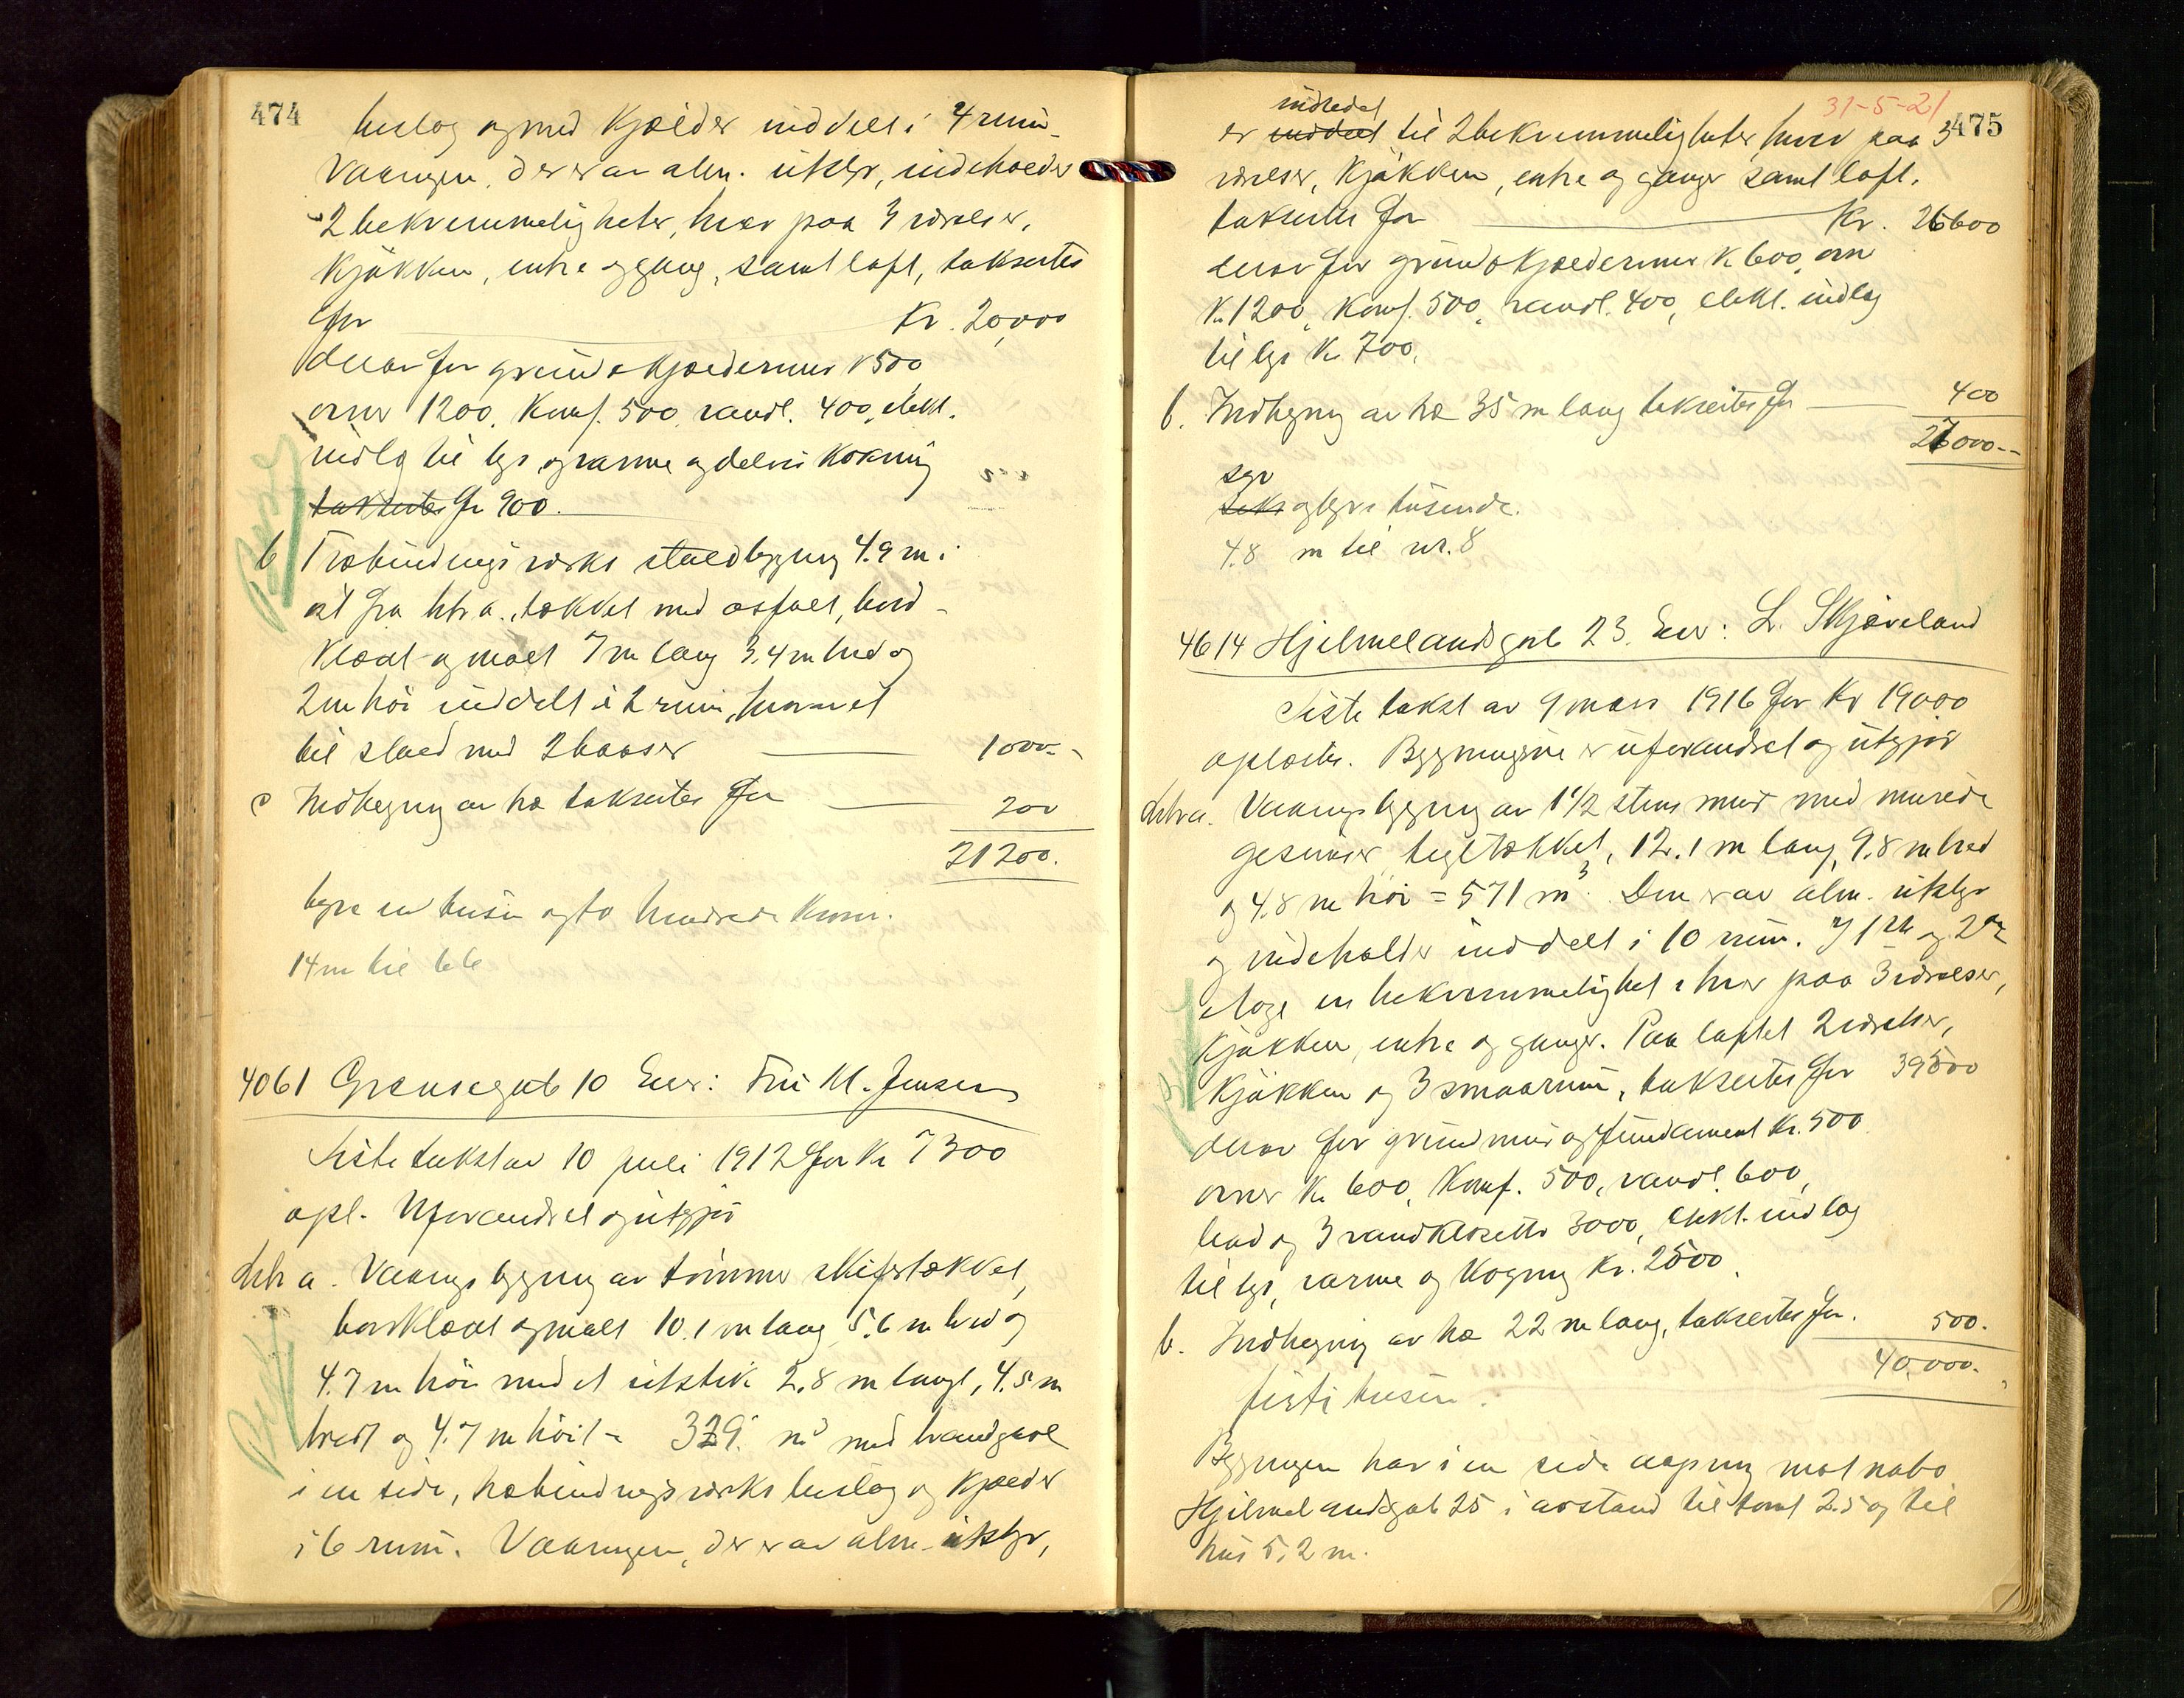 474
beslag og med Kjælder inddelt i 4 rum.
Vaaningen, der er av alm. utstyr, indeholder
2 bekvemmeligheter, hver paa 3 værelser,
Kjøkken, entre og gang, samt loft, takseres
for Kr. 20,000
derav for grund o kjældermur K 500,
ovner 1200, Komf. 500, vandl. 400, elekt.
indlg til lys og varme og delvis Kokning
takseres for 900.
b Træbindingsverks staldbygning 4.9 m i
øst fra litr a., tækket med asfalt, bord-
klædt og malt 7 m lang 3.4 m bred og
2 m høi inddelt i 2 rum, hvorav et
til stald med 2 baaser 1000.-
c Indhegning av træ takseres for 200
21200.
tyve en tusen og to hundrede Kroner.
14 m til
4061 Grensegate 10 Eier: Fru M. Jensen
Siste takst av 10 juli 1912 for Kr 7300
opl. Uforandret og utgjør
Litr a. Vaaningsbygning av tømmer skifertækket,
bordklædt og malt 10.1 m lang 5.6 m bred og
4.7 m høi med et utstik 2.8 m langt, 4.5 m
bredt og 4.7 m høit = 329 m³ med brandgavl
i en side, træbindingsverks beslag og Kjælder
i 6 rum. Vaaningen, der er av alm. utstyr,
31-5-21
475
indredet
er inddelt til 2 bekvemmeligheter, hver paa 3
værelser, Kjøkken, entre og ganger samt loft.
takseres for Kr. 26600
derav for grund o kjældermur K 600, ovn
K. 1200, Komf. 500, vandl. 400, elekt. indlæg
til lys Kr 700.
b. Indhegning av træ 35 m lang takseres for 400
27000.-
syv
seks og tyve tusende.
4.8 m til nr. 8
4614 Hjelmelandsgate 23. Eier: L. Skjæveland
Siste takst av 9 mars 1916 for Kr 19000
oplæstes. Bygningene er uforandret og utgjør
Litra a. Vaaningsbygning av 1 1/2 stens mur med murede
gesimser, tegltækket, 12.1 m lang, 9.8 m bred
og 4.8 m høi = 571 m³. Den er av alm. utstyr
og indeholder inddelt i 10 rum. I 1ste og 2den
etage en bekvemmelighet i hver paa 3 værelser,
Kjøkken, entre og ganger. Paa loftet 2 værelser,
Kjøkken og 3 smaarum, takseres for 39500
derav for grundmur og fundament Kr. 500
ovner Kr 600, Komf. 500, vandl. 600,
bad og 3 vandklosetter 3000, elekt. indlag
til lys, varme og Kogning Kr. 2500.
b. Indhegning av træ 22 m lang, takseres for. 500.
40,000.
firti tusen.
Bygningen har i en side aapning mot nabo
Hjelmelandsgate 25 i avstand til tomt 2.5 og til
hus 5.2 m.